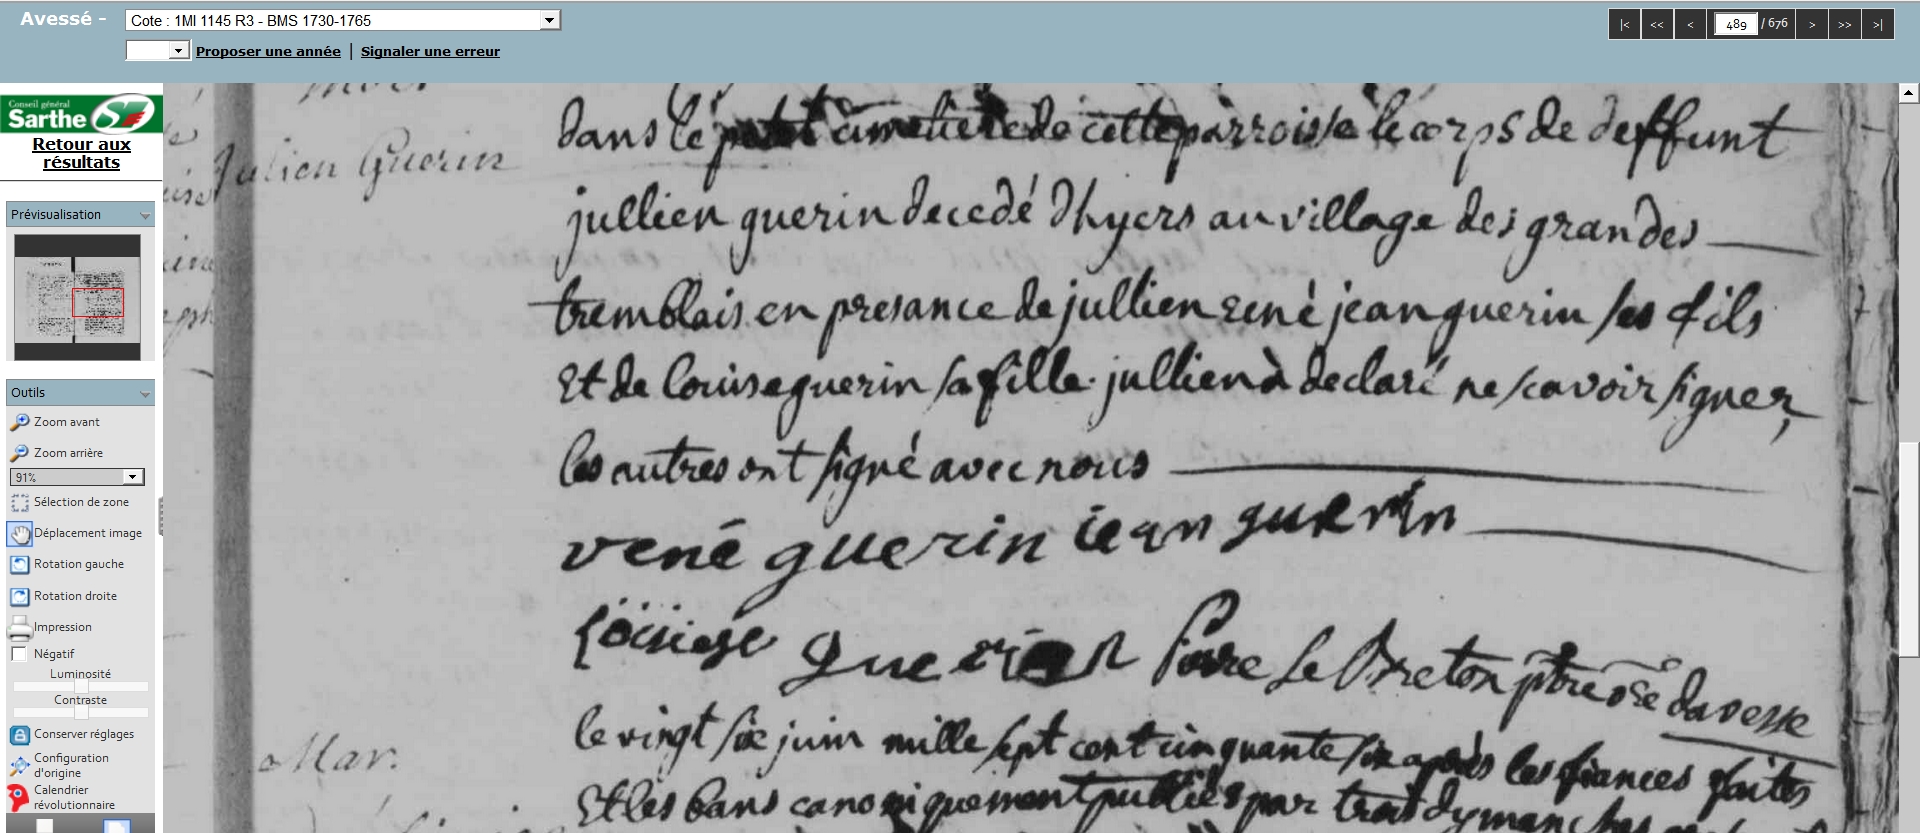 Avessé -
Cote : 1MI 1145 R3 - BMS 1730-1765
Proposer une année | Signaler une erreur
|< << < 489 / 676 > >> >|
Conseil général
Sarthe
Retour aux
résultats
Prévisualisation
Outils
Zoom avant
Zoom arrière
91%
Sélection de zone
Déplacement image
Rotation gauche
Rotation droite
Impression
Négatif
Luminosité
Contraste
Conserver réglages
Configuration
d'origine
Calendrier
révolutionnaire
Julien Guerin
dans le petit cimetiere de cette parroisse le corps de deffunt
jullien guerin decedé d'hyers au village des grandes
tremblais en presance de jullien rené jean guerin ses fils
Et de louise guerin sa fille jullien à declaré ne scavoir signer,
les autres ont signé avec nous
rené guerin iean guerin
guerin le Breton ptre davesse
Mar.
le vingt six juin mille sept cent cinquante six après les fiances faites
Et les bans canoniquement publiés par trois dymanches